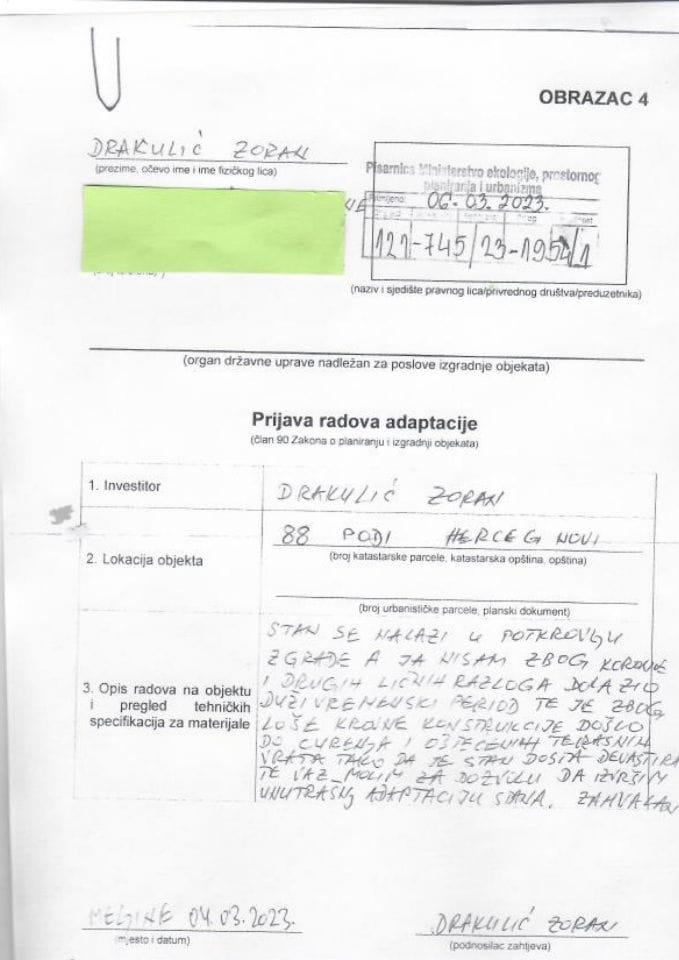 OBRAZAC 4
DRAKULIĆ ZORAN
(prezime, očevo ime i ime fizičkog lica)
Pisarnica Ministarstvo ekologije, prostornog
planiranja i urbanizma
06.03.2023.
121-745/23-1954/1
(naziv i sjedište pravnog lica/privrednog društva/preduzetnika)
(organ državne uprave nadležan za poslove izgradnje objekata)
Prijava radova adaptacije
(član 90 Zakona o planiranju i izgradnji objekata)
1. Investitor
DRAKULIĆ ZORAN
2. Lokacija objekta
88 PODI HERCEG NOVI
(broj katastarske parcele, katastarska opština, opština)
(broj urbanističke parcele, planski dokument)
3. Opis radova na objektu
i pregled tehničkih
specifikacija za materijale
STAN SE NALAZI U POTKROVLJU
ZGRADE A JA NISAM ZBOG KORONE
I DRUGIH LIČNIH RAZLOGA DOLAZIO
DUŽI VREMENSKI PERIOD TE JE ZBOG
LOŠE KROVNE KONSTRUKCIJE DOŠLO
DO CURENJA I OŠTEĆENIH TERASNIH
VRATA TAKO DA JE STAN DOSTA DEVASTIRA
TE VAZ MOLIM ZA DOZVOLU DA IZVRŠIM
UNUTRAŠNJ ADAPTACIJU STANA. ZAHVALAN
MELJINE 04.03.2023.
(mjesto i datum)
DRAKULIĆ ZORAN
(podnosilac zahtjeva)